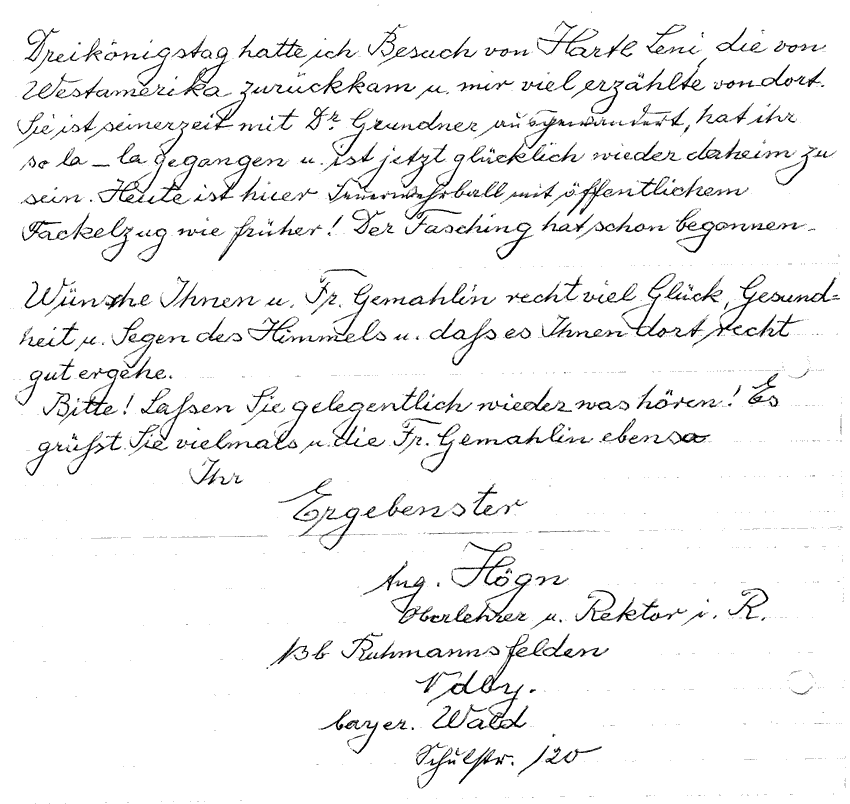 Dreikönigstag hatte ich Besuch von Hartl Leni, die von
Westamerika zurückkam u. mir viel erzählte von dort.
Sie ist seinerzeit mit Dr. Grundner ausgewandert, hat ihr
so la – la gegangen u. ist jetzt glücklich wieder daheim zu
sein. Heute ist hier Feuerwehrball mit öffentlichem
Fackelzug wie früher! Der Fasching hat schon begonnen.
Wünsche Ihnen u. Fr. Gemahlin recht viel Glück, Gesund=
heit u. Segen des Himmels u. daß es Ihnen dort recht
gut ergehe.
Bitte! Laßen Sie gelegentlich wieder was hören! Es
grüßt Sie vielmals u. die Fr. Gemahlin ebenso
Ihr
Ergebenster
Aug. Högn
Oberlehrer u. Rektor i. R.
13b Ruhmannsfelden
Ndby.
bayer. Wald
Schulstr. 120